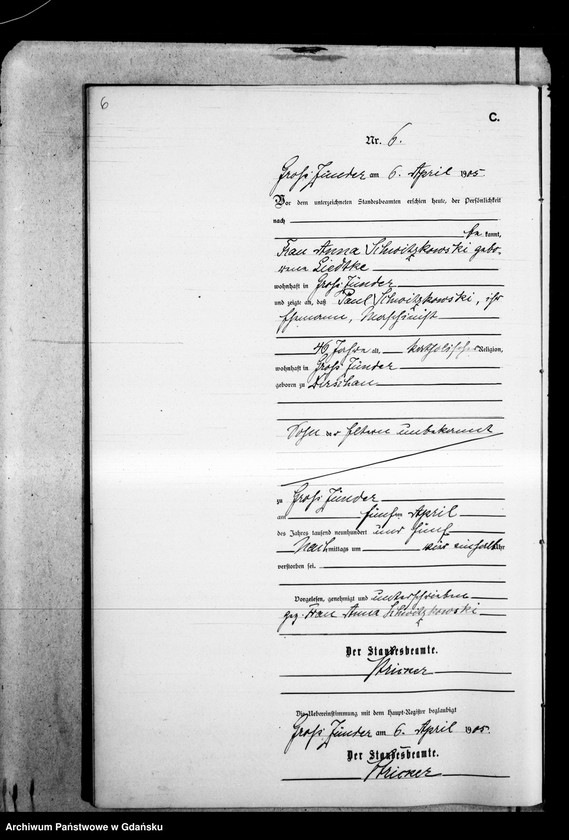 6
C.
Nr. 6.
Groß Zünder am 6. April 1905.
Vor dem unterzeichneten Standesbeamten erschien heute, der Persönlichkeit
nach
be kannt,
Frau Anna Schwitzkowski gebo-
rene Liedtke
wohnhaft in Groß Zünder
und zeigte an, daß Paul Schwitzkowski, ihr
Ehemann, Maschinist
49 Jahre alt, katholischer Religion,
wohnhaft in Groß Zünder
geboren zu Dirschau
Sohn der Eltern unbekannt
zu Groß Zünder
am fünften April
des Jahres tausend neunhundert und fünf
Nachmittags um einhalb Uhr
verstorben sei.
Vorgelesen, genehmigt und unterschrieben
gez. Frau Anna Schwitzkowski
Der Standesbeamte.
Die Uebereinstimmung mit dem Haupt-Register beglaubigt
Groß Zünder am 6. April 1905.
Der Standesbeamte.
Archiwum Państwowe w Gdańsku